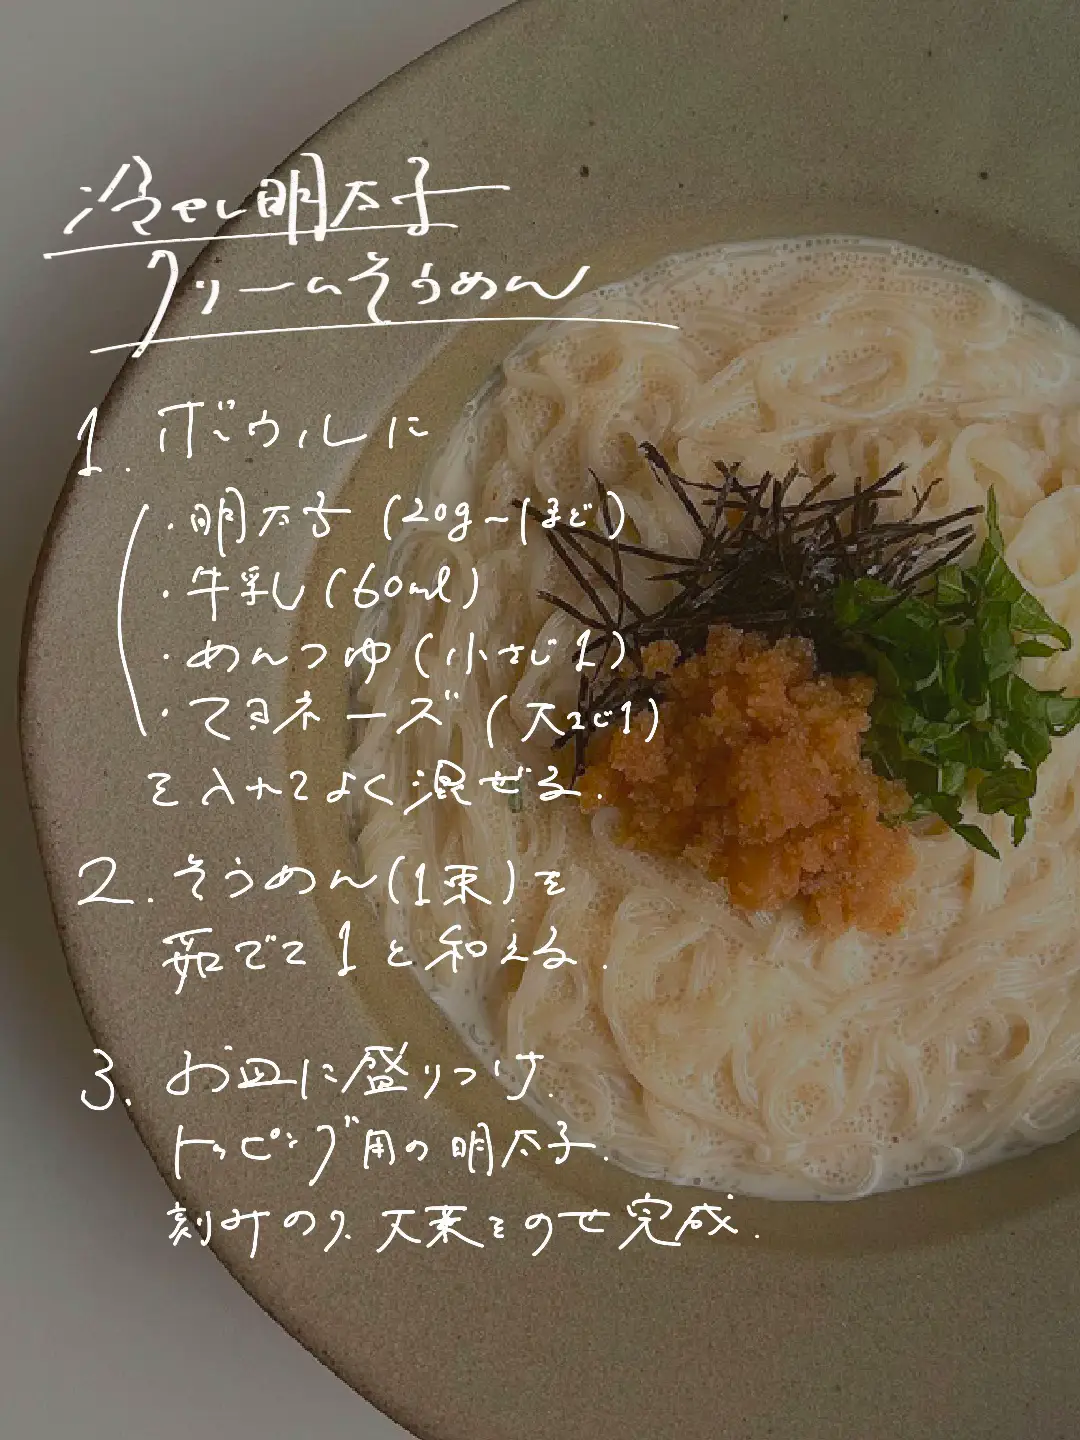 冷やし明太子
クリームそうめん
1. ボウルに
・明太子 (20g〜1まど)
・牛乳 (60ml)
・めんつゆ (小さじ1)
・マヨネーズ (大さじ1)
を入れてよく混ぜる.
2. そうめん(1束)を
茹でて1と和える.
3. お皿に盛りつけ.
トッピング用の明太子.
刻みのり、大葉をのせ完成.